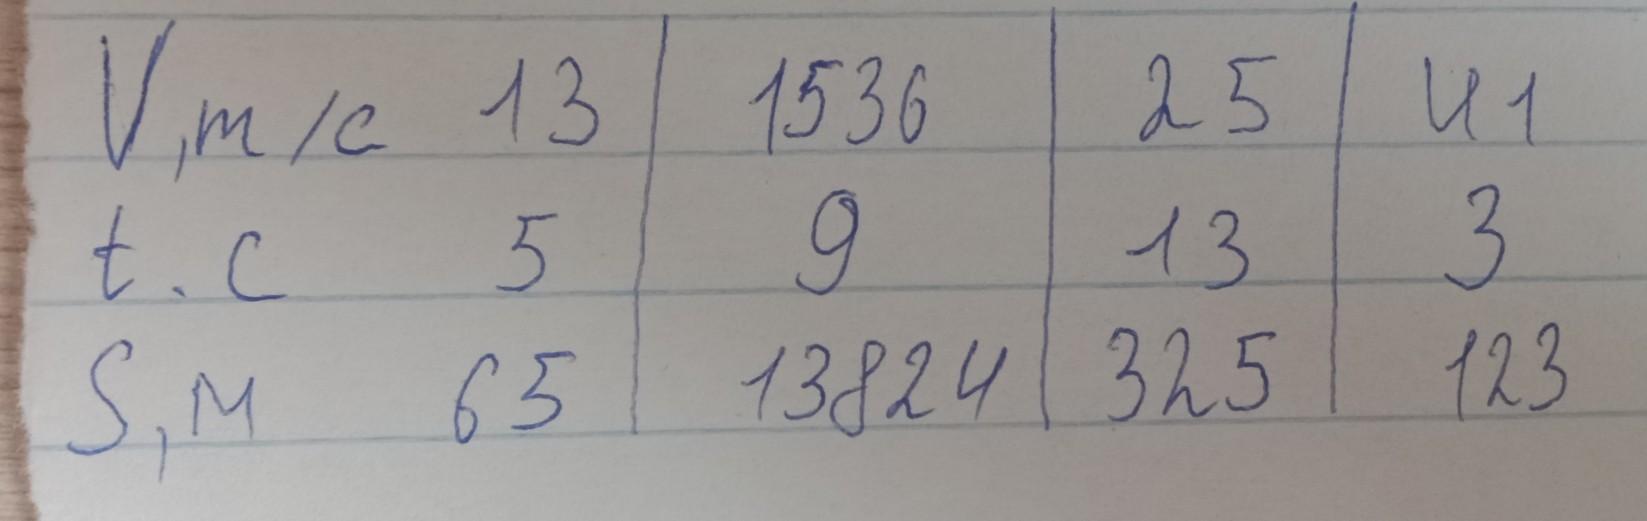 V, м/с 13 1536 25 41
t. с 5 9 13 3
S, м 65 13824 325 123